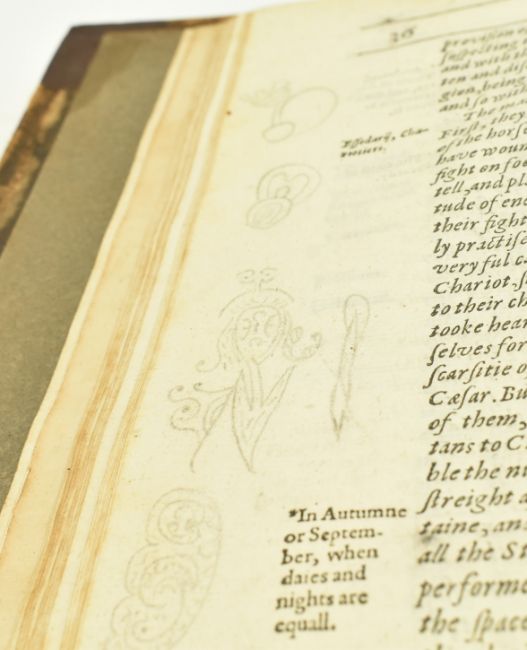 36
provision
suspecting
and with th
ten and dis
gion, being
and so with
The ma
First, they
of the horse
have woun
fight on foo
tell, and pl
tude of ene
their fight
ly practisc
very ful c
Chariot, s
to their ch
tooke hear
selves for
scarsitie o
Cæsar. Bu
of them,
tans to C
ble the nu
streight a
taine, an
all the St
performe
the space
Essedarij, Cha-
rioteers.
*In Autumne
or Septem-
ber, when
daies and
nights are
equall.